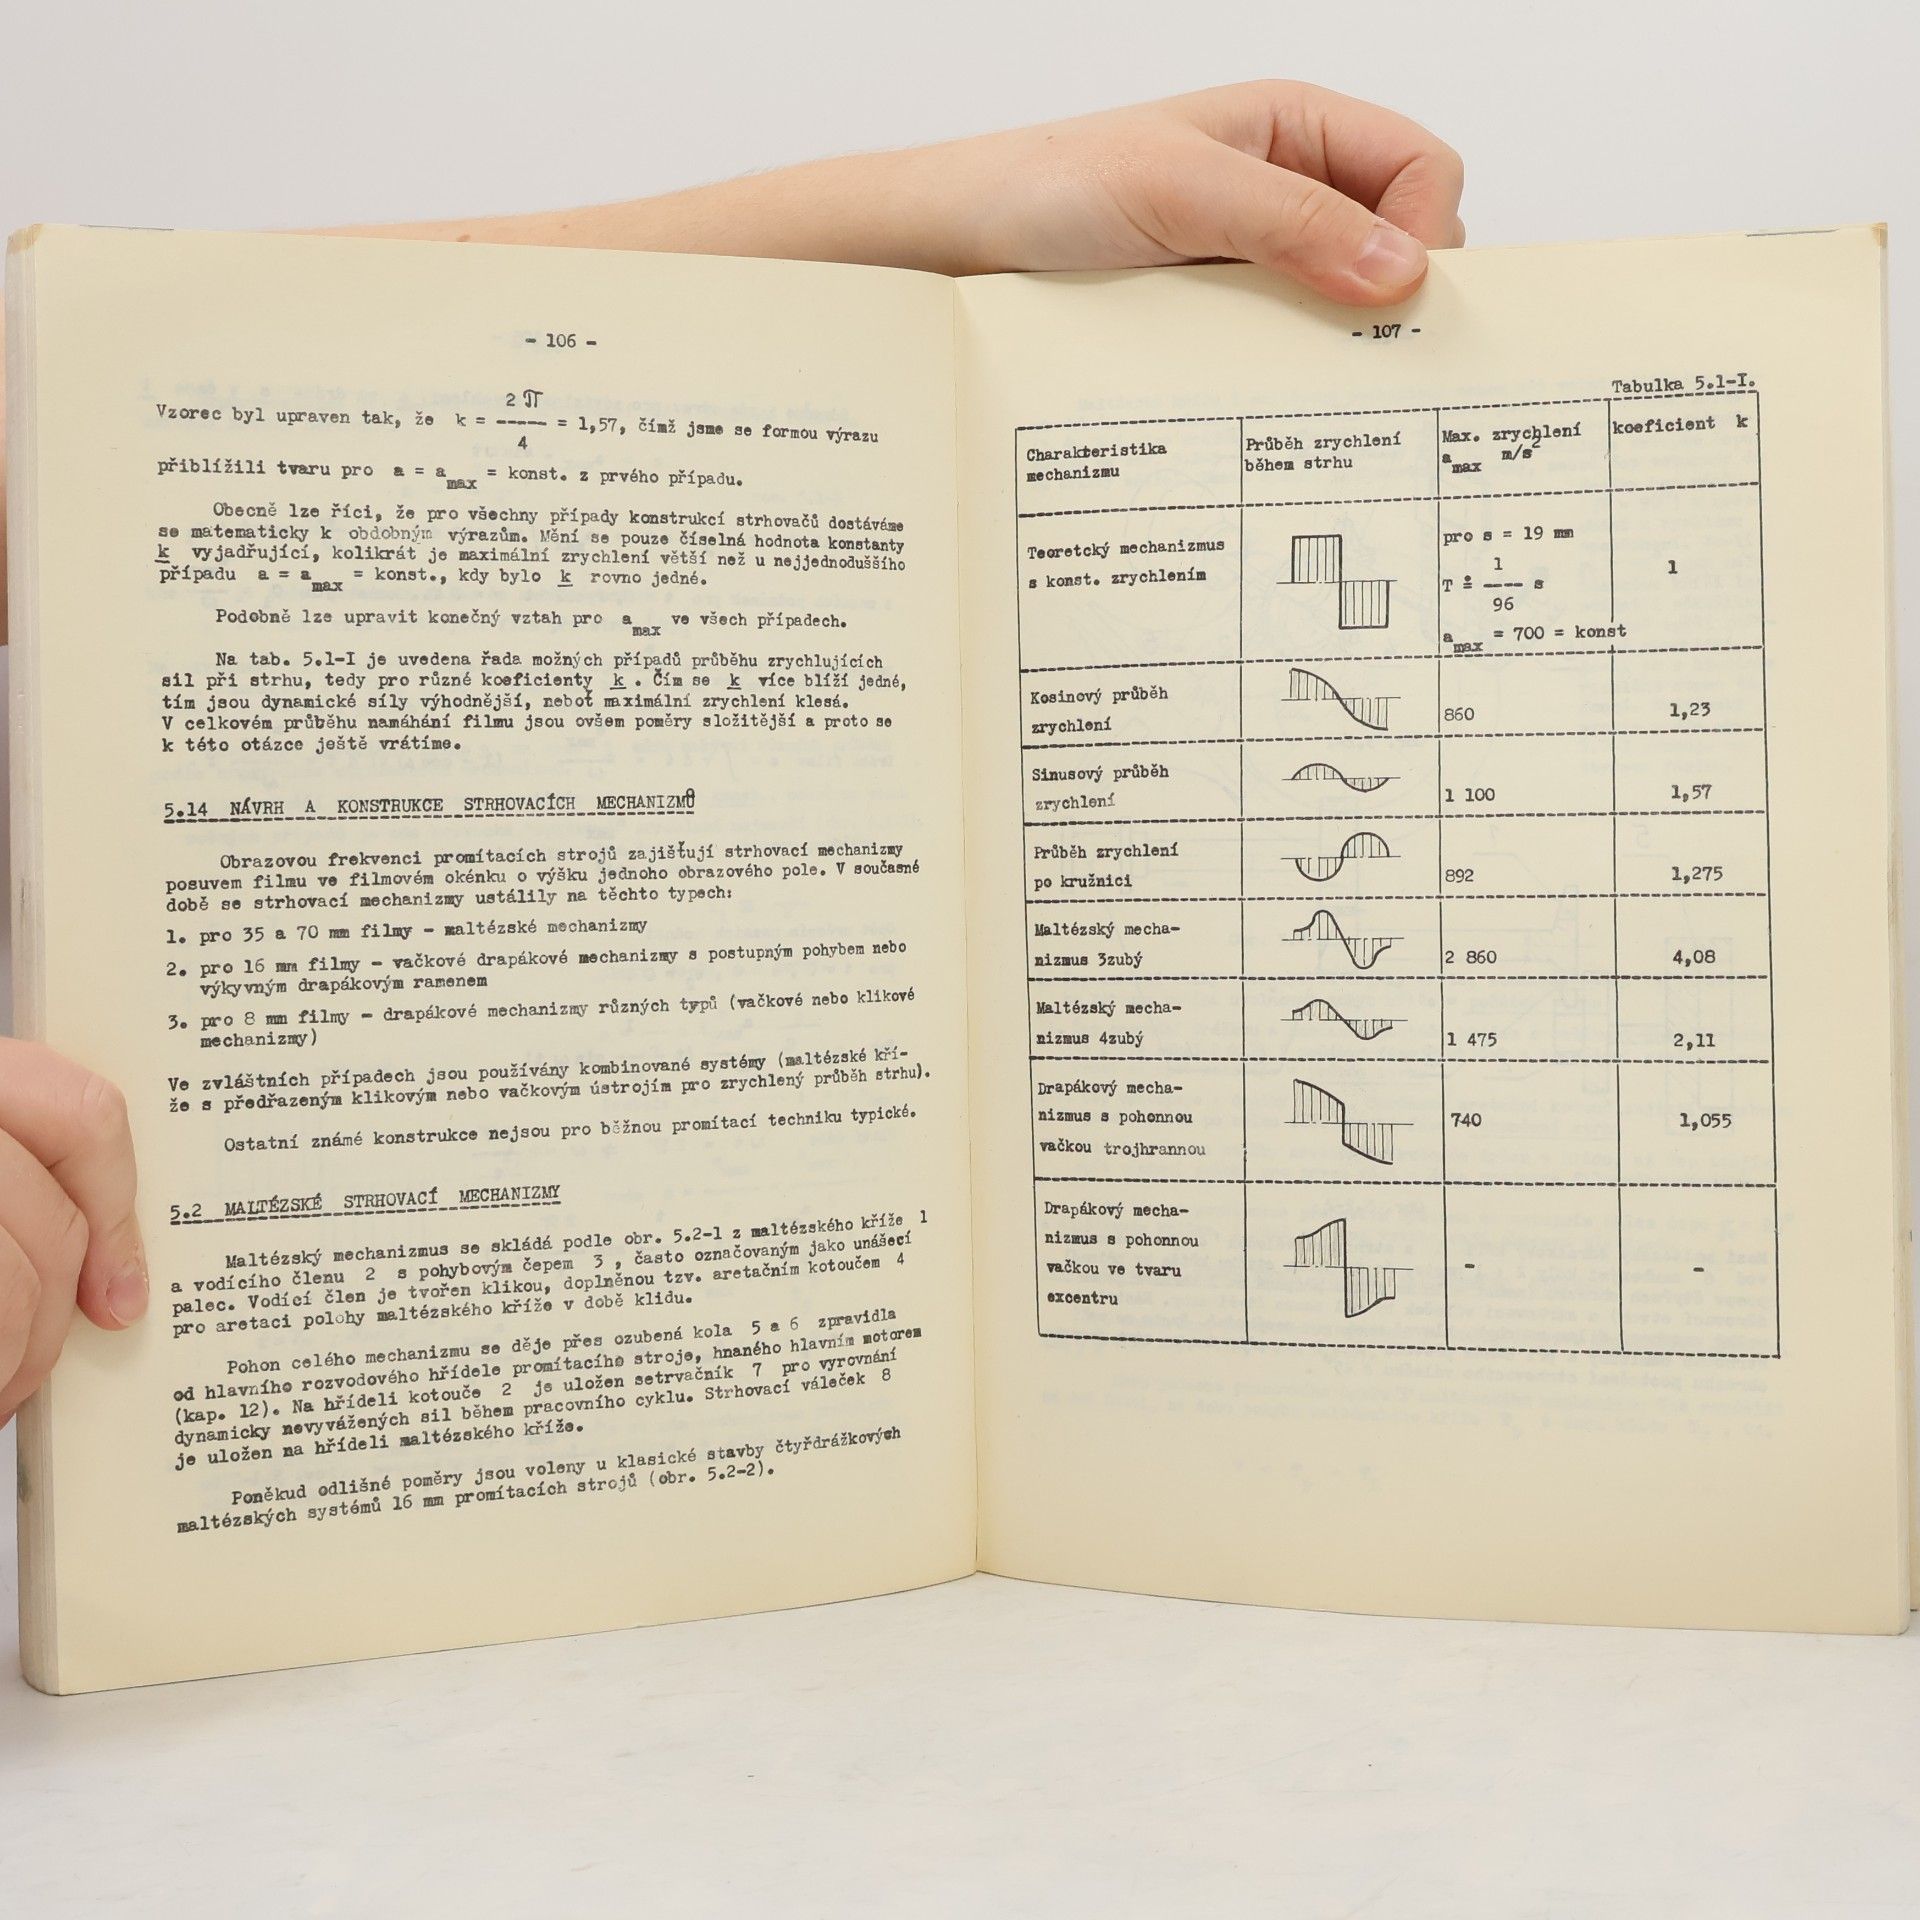 - 106 -
2 π
Vzorec byl upraven tak, že k = ----- = 1,57, čímž jsme se formou výrazu
4
přiblížili tvaru pro a = a max = konst. z prvého případu.
Obecně lze říci, že pro všechny případy konstrukcí strhovačů dostáváme
se matematicky k obdobným výrazům. Mění se pouze číselná hodnota konstanty
k vyjadřující, kolikrát je maximální zrychlení větší než u nejjednoduššího
případu a = a max = konst., kdy bylo k rovno jedné.
Podobně lze upravit konečný vztah pro a max ve všech případech.
Na tab. 5.1-I je uvedena řada možných případů průběhu zrychlujících
sil při strhu, tedy pro různé koeficienty k . Čím se k více blíží jedné,
tím jsou dynamické síly výhodnější, neboť maximální zrychlení klesá.
V celkovém průběhu namáhání filmu jsou ovšem poměry složitější a proto se
k této otázce ještě vrátíme.
5.14 NÁVRH A KONSTRUKCE STRHOVACÍCH MECHANIZMŮ
Obrazovou frekvenci promítacích strojů zajišťují strhovací mechanizmy
posuvem filmu ve filmovém okénku o výšku jednoho obrazového pole. V současné
době se strhovací mechanizmy ustálily na těchto typech:
1. pro 35 a 70 mm filmy - maltézské mechanizmy
2. pro 16 mm filmy - vačkové drapákové mechanizmy s postupným pohybem nebo
výkyvným drapákovým ramenem
3. pro 8 mm filmy - drapákové mechanizmy různých typů (vačkové nebo klikové
mechanizmy)
Ve zvláštních případech jsou používány kombinované systémy (maltézské kří-
že s předřazeným klikovým nebo vačkovým ústrojím pro zrychlený průběh strhu).
Ostatní známé konstrukce nejsou pro běžnou promítací techniku typické.
5.2 MALTÉZSKÉ STRHOVACÍ MECHANIZMY
Maltézský mechanizmus se skládá podle obr. 5.2-1 z maltézského kříže 1
a vodícího členu 2 s pohybovým čepem 3 , často označovaným jako unášecí
palec. Vodící člen je tvořen klikou, doplněnou tzv. aretačním kotoučem 4
pro aretaci polohy maltézského kříže v době klidu.
Pohon celého mechanizmu se děje přes ozubená kola 5 a 6 zpravidla
od hlavního rozvodového hřídele promítacího stroje, hnaného hlavním motorem
(kap. 12). Na hřídeli kotouče 2 je uložen setrvačník 7 pro vyrovnání
dynamicky nevyvážených sil během pracovního cyklu. Strhovací váleček 8
je uložen na hřídeli maltézského kříže.
Poněkud odlišné poměry jsou voleny u klasické stavby čtyřdrážkových
maltézských systémů 16 mm promítacích strojů (obr. 5.2-2).
- 107 -
Tabulka 5.1-I.
Charakteristika mechanizmu
Průběh zrychlení během strhu
Max. zrychlení a max m/s2
koeficient k
Teoretcký mechanizmus
s konst. zrychlením
pro s = 19 mm
1
T ≐ ---- s
96
a max = 700 = konst
1
Kosinový průběh
zrychlení
860
1,23
Sinusový průběh
zrychlení
1 100
1,57
Průběh zrychlení
po kružnici
892
1,275
Maltézský mecha-
nizmus 3zubý
2 860
4,08
Maltézský mecha-
nizmus 4zubý
1 475
2,11
Drapákový mecha-
nizmus s pohonnou
vačkou trojhrannou
740
1,055
Drapákový mecha-
nizmus s pohonnou
vačkou ve tvaru
excentru
-
-